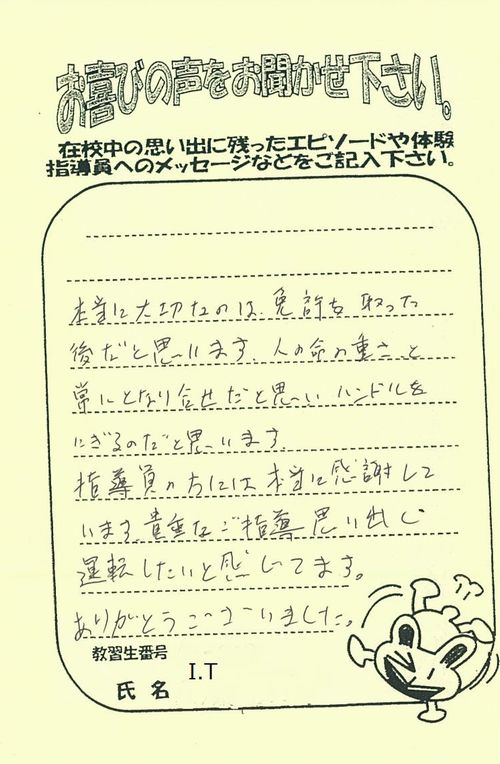 お喜びの声をお聞かせ下さい。
在校中の思い出に残ったエピソードや体験
指導員へのメッセージなどをご記入下さい。
本当に大切なのは、免許を取った
後だと思います、人の命の重さと
常にとなり合せだと思い ハンドルを
にぎるのだと思います。
指導員の方には本当に感謝して
います。貴重なご指導 思い出し
運転したいと感じてます。
ありがとうございました。
教習生番号
氏名 I.T